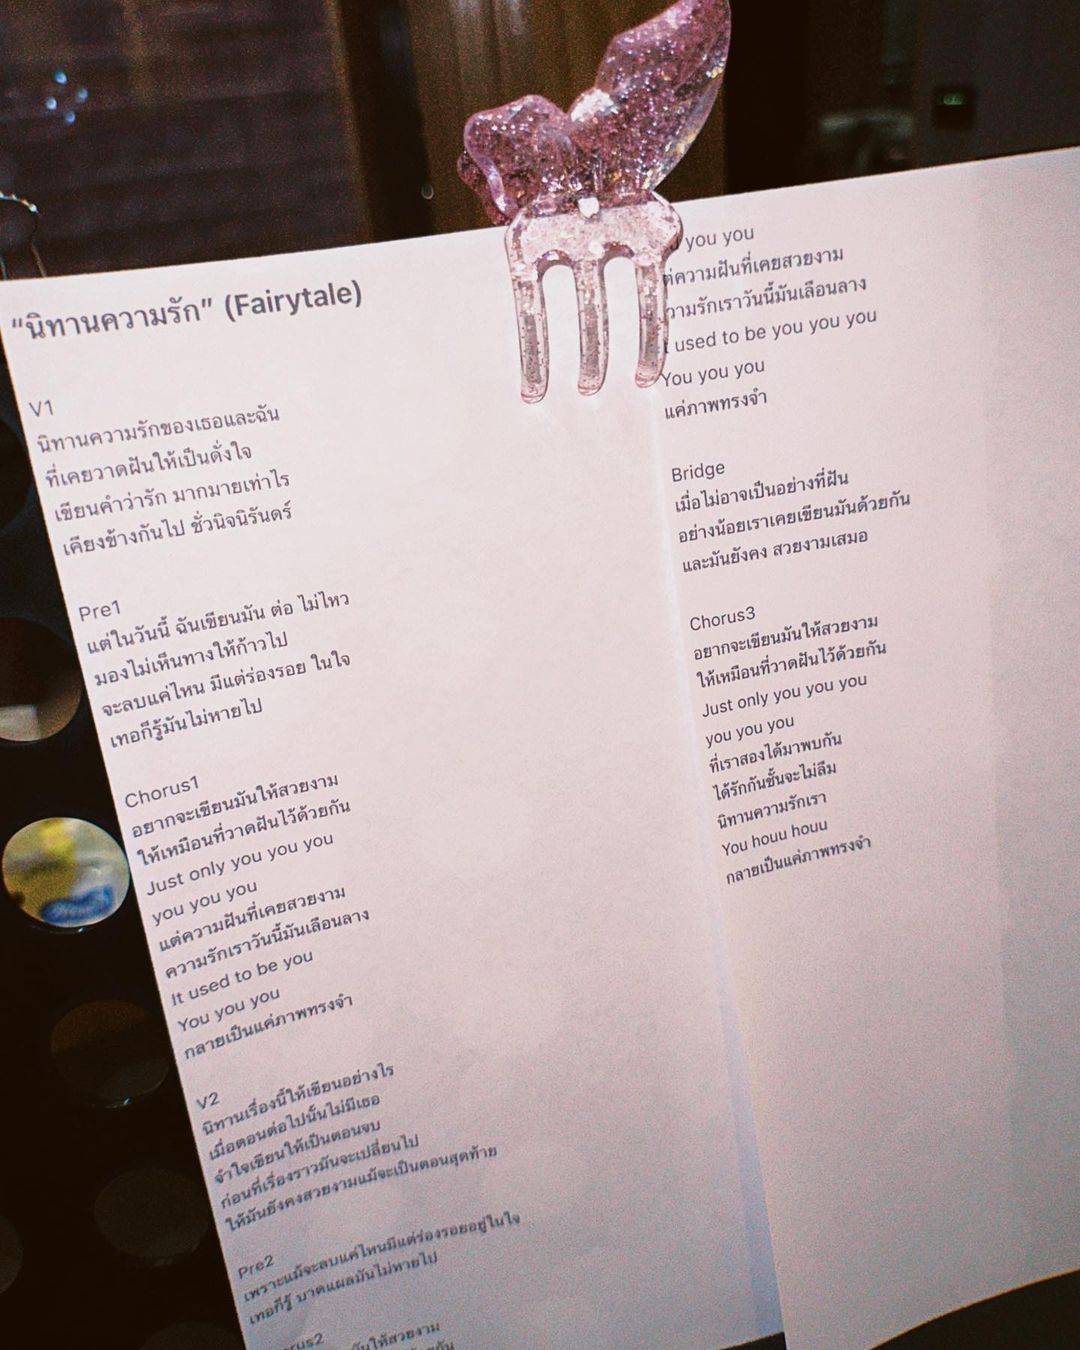 “นิทานความรัก” (Fairytale)
V1
นิทานความรักของเธอและฉัน
ที่เคยวาดฝันให้เป็นดั่งใจ
เขียนคำว่ารัก มากมายเท่าไร
เคียงข้างกันไป ชั่วนิจนิรันดร์
Pre1
แต่ในวันนี้ ฉันเขียนมัน ต่อ ไม่ไหว
มองไม่เห็นทางให้ก้าวไป
จะลบแค่ไหน มีแต่ร่องรอย ในใจ
เทอก็รู้มันไม่หายไป
Chorus1
อยากจะเขียนมันให้สวยงาม
ให้เหมือนที่วาดฝันไว้ด้วยกัน
Just only you you you
you you you
แต่ความฝันที่เคยสวยงาม
ความรักเราวันนี้มันเลือนลาง
It used to be you
You you you
กลายเป็นแค่ภาพทรงจำ
V2
นิทานเรื่องนี้ให้เขียนอย่างไร
เมื่อตอนต่อไปนั้นไม่มีเธอ
จำใจเขียนให้เป็นตอนจบ
ก่อนที่เรื่องราวมันจะเปลี่ยนไป
ให้มันยังคงสวยงามแม้จะเป็นตอนสุดท้าย
Pre2
เพราะแม้จะลบแค่ไหนมีแต่ร่องรอยอยู่ในใจ
เทอก็รู้ บาดแผลมันไม่หายไป
you you
ความฝันที่เคยสวยงาม
วามรักเราวันนี้มันเลือนลาง
used to be you you you
You you you
แค่ภาพทรงจำ
Bridge
เมื่อไม่อาจเป็นอย่างที่ฝัน
อย่างน้อยเราเคยเขียนมันด้วยกัน
และมันยังคง สวยงามเสมอ
Chorus3
อยากจะเขียนมันให้สวยงาม
ให้เหมือนที่วาดฝันไว้ด้วยกัน
Just only you you you
you you you
ที่เราสองได้มาพบกัน
ได้รักกันชั้นจะไม่ลืม
นิทานความรักเรา
You houu houu
กลายเป็นแค่ภาพทรงจำ